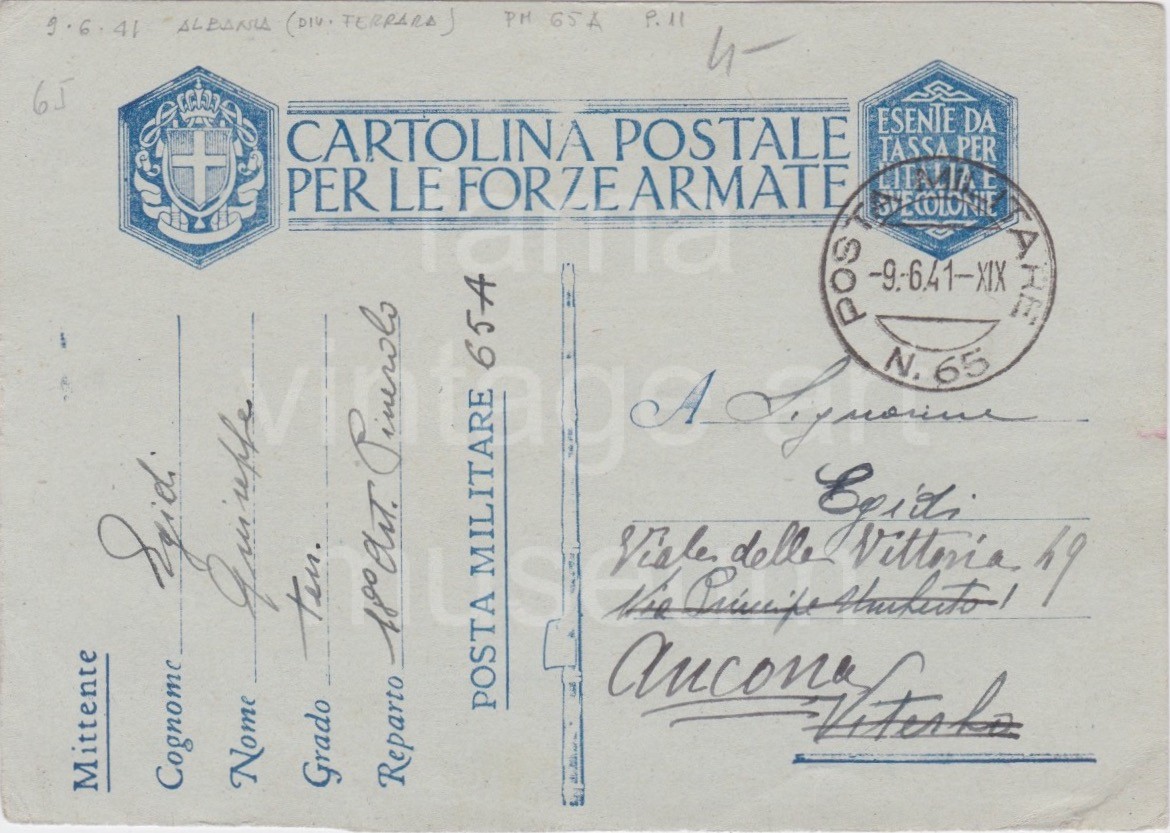 9·6·41 ALBANIA (DIV. FERRARA) PM 65A P.11
65
CARTOLINA POSTALE
PER LE FORZE ARMATE
ESENTE DA
TASSA PER
L'ITALIA E
LE COLONIE
POSTA MILITARE
-9.-6.41-XIX
N. 65
Mittente
Cognome Egidi
Nome Giuseppe
Grado ten.
Reparto 18° Art. Pinerolo
POSTA MILITARE 65A
A Signorina
Egidi
Viale della Vittoria 49
Via Principe Umberto 1
Ancona
Viterbo
fama
vintage art
museum